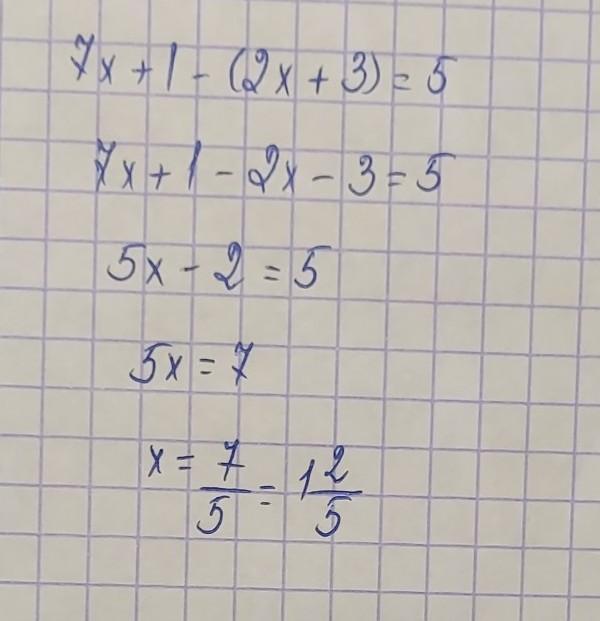 7x + 1 - (2x + 3) = 5
7x + 1 - 2x - 3 = 5
5x - 2 = 5
5x = 7
x = 7/5 = 1 2/5